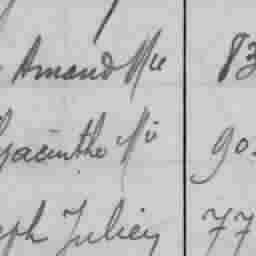 Amand Mie 83
Hyacinthe Mi 90
eph Julien 77